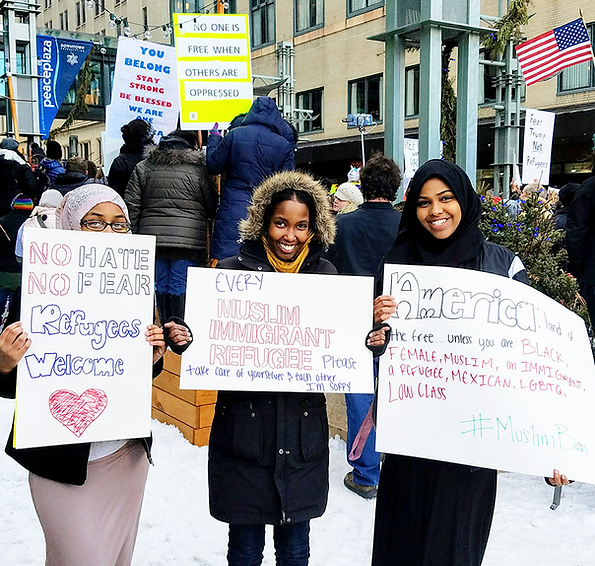 peaceplaza
DOWNTOWN
YOU
BELONG
STAY
STRONG
BE BLESSED
WE ARE
ONE
NO ONE IS
FREE WHEN
OTHERS ARE
OPPRESSED
Fear
Trump
Not
Refugees
NO HATE
NO FEAR
Refugees
Welcome
EVERY
MUSLIM
IMMIGRANT
REFUGEE... Please
take care of yourselves & each other
I'm SORRY
America, land of
the free... unless you are: BLACK,
FEMALE, MUSLIM, an IMMIGRANT,
a REFUGEE, MEXICAN, LGBTQ,
LOW CLASS
#MuslimBan